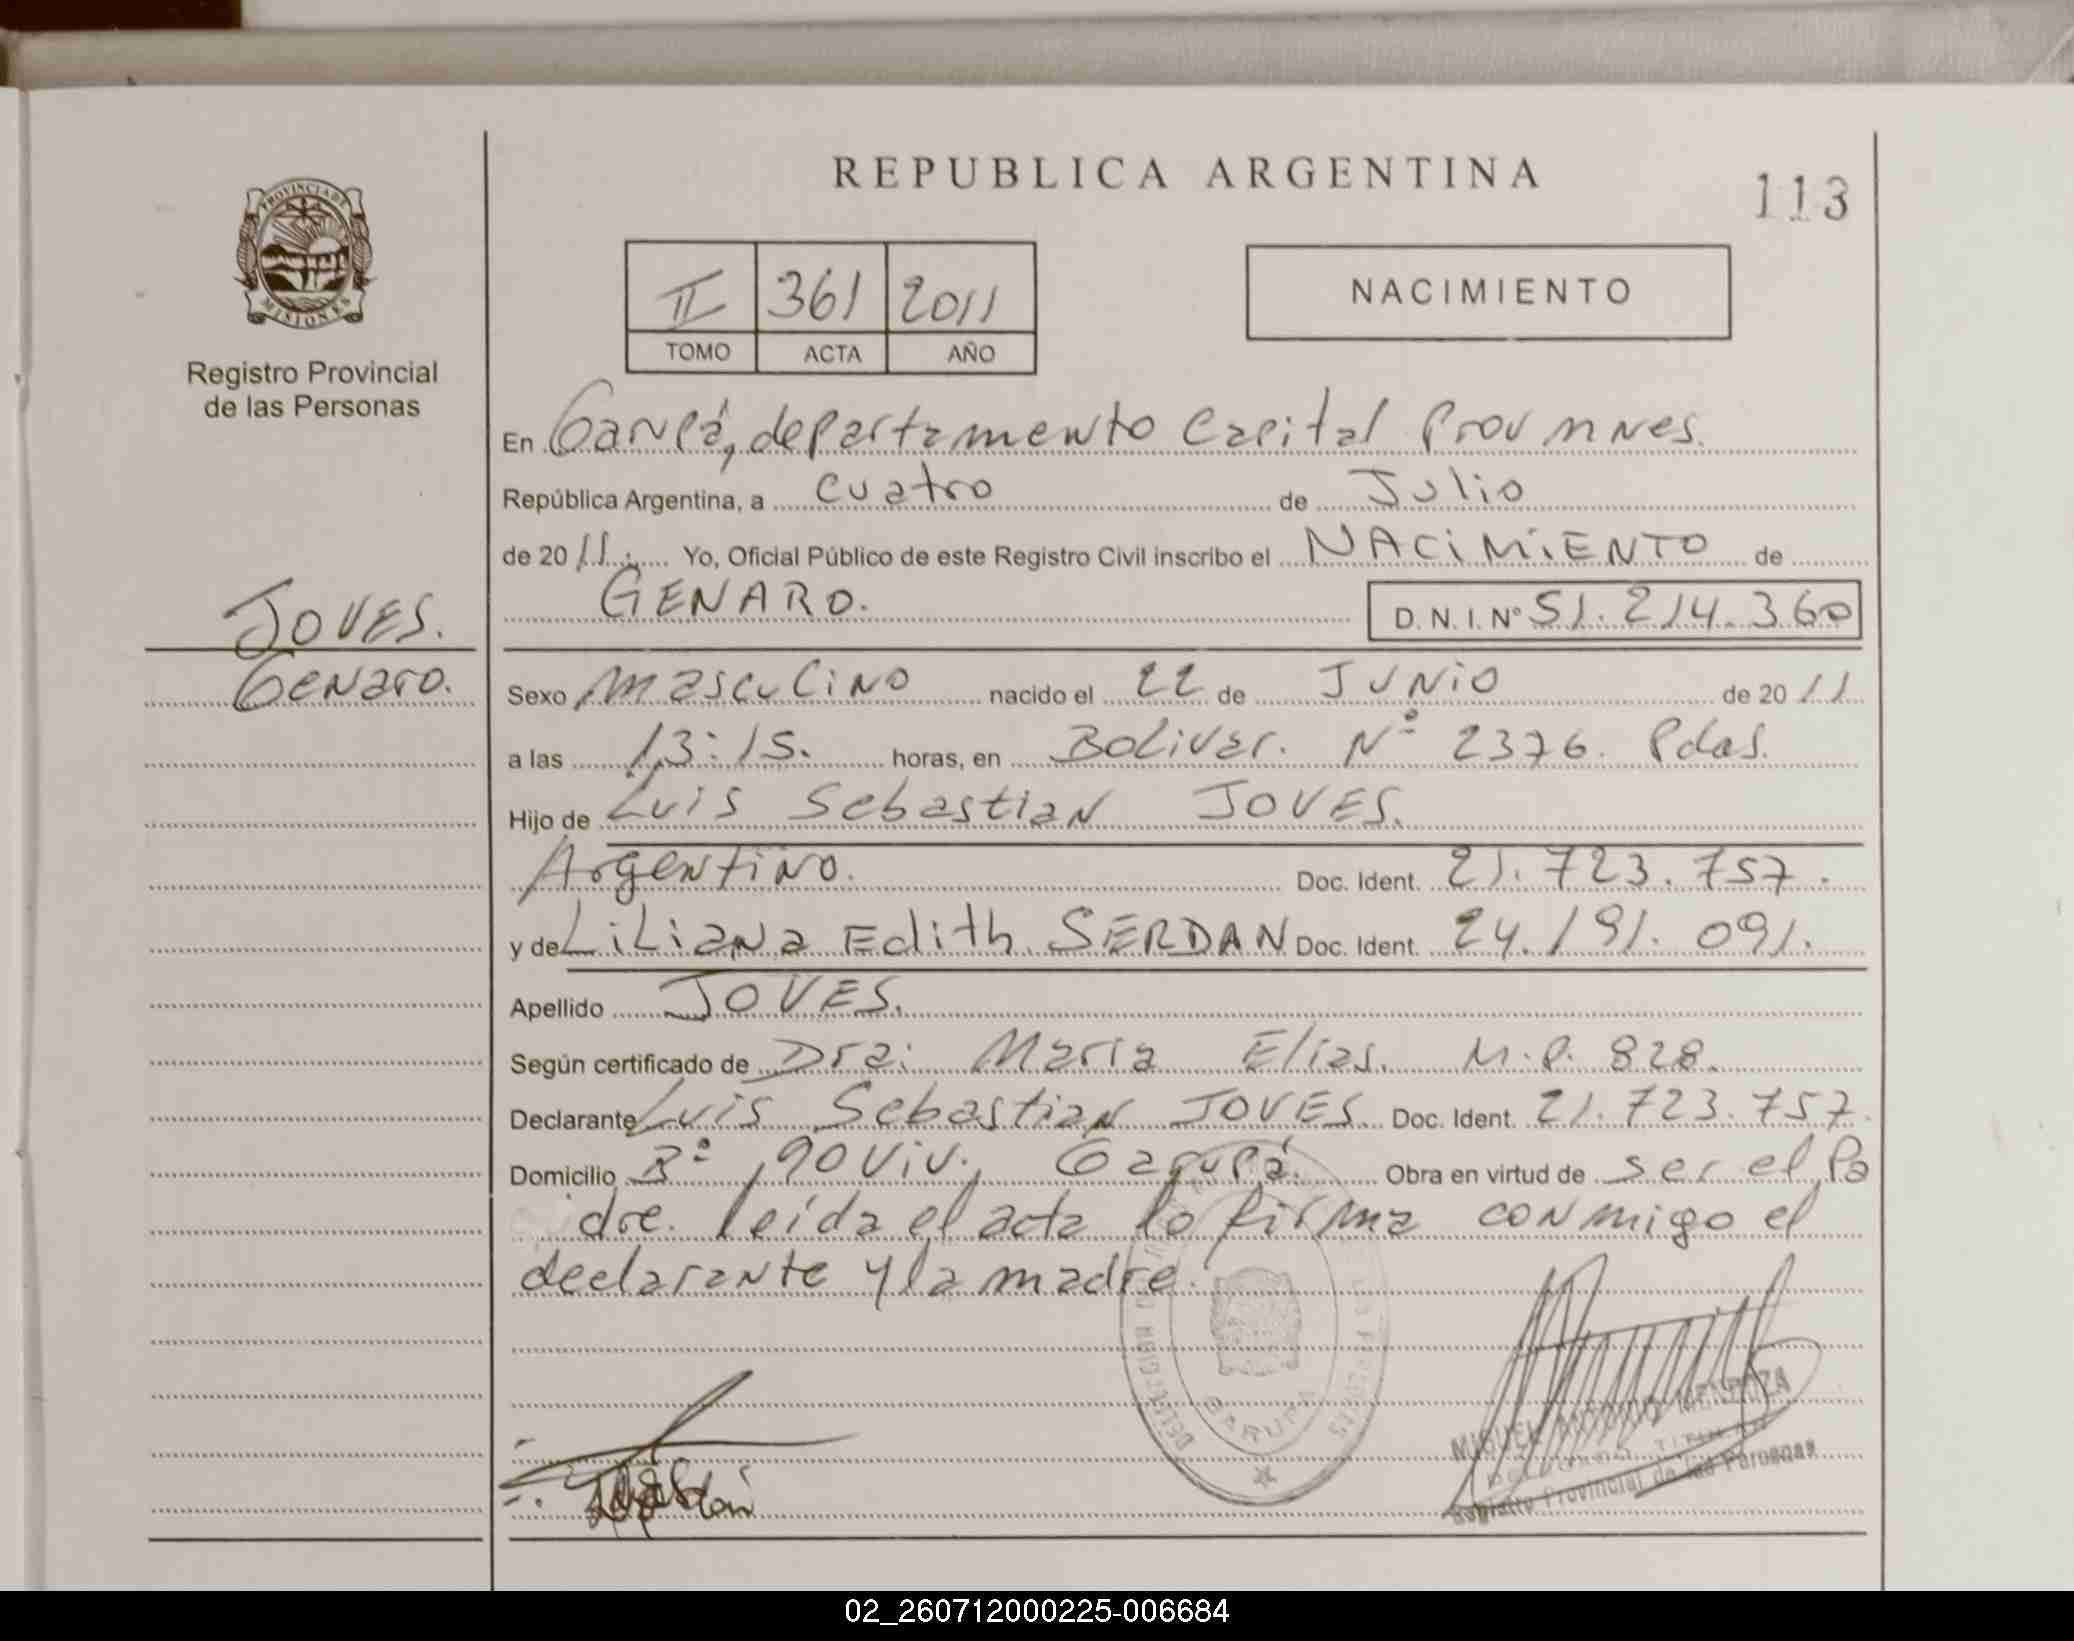 REPUBLICA ARGENTINA
113
PROVINCIA DE
MISIONES
Registro Provincial
de las Personas
II 361 2011
TOMO ACTA AÑO
NACIMIENTO
En Garupá, departamento Capital Prov mnes.
República Argentina, a cuatro de Julio
de 2011. Yo, Oficial Público de este Registro Civil inscribo el NACIMIENTO de
GENARO. D.N.I. Nº 51.214.360
JOVES.
Genaro.
Sexo masculino nacido el 22 de JUNIO de 2011
a las 13:15. horas, en Bolivar. Nº 2376. Pdas.
Hijo de Luis Sebastian JOVES.
Argentino. Doc. Ident. 21.723.757.
y de Liliana Edith SERDAN Doc. Ident. 24.191.091.
Apellido JOVES.
Según certificado de Dra: Maria Elias. M.P. 828.
Declarante Luis Sebastian JOVES Doc. Ident. 21.723.757.
Domicilio Bº 90 Viv., Garupá. Obra en virtud de ser el Pa
dre. leída el acta lo firma conmigo el
declarante y la madre.
GARUPA
MIGUEL MENDOZA
Registro Provincial de las Personas
02_260712000225-006684